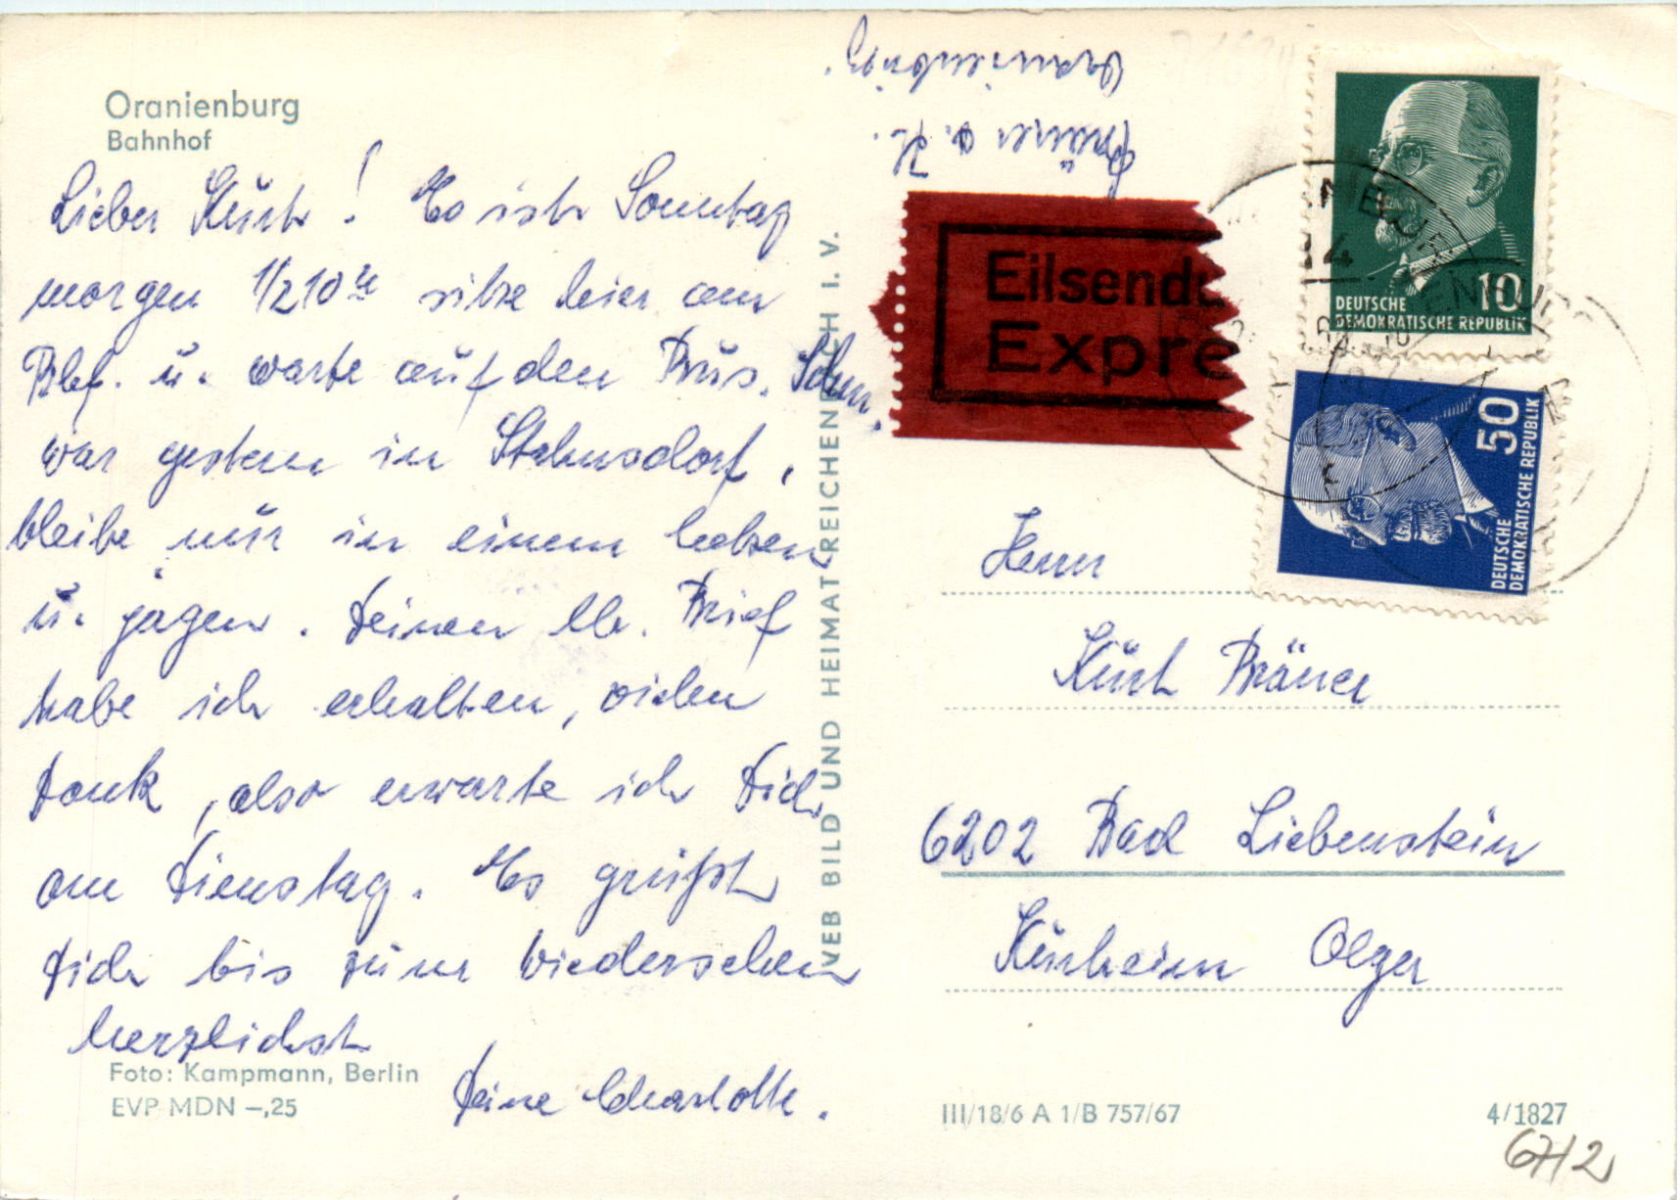 Oranienburg
Bahnhof
Lieber Kurt! Es ist Sonntag
morgen 1/2 10 sitze hier am
u. warte auf den Bus.
war gestern in Stahnsdorf,
bleibe nur in einem hetzen
u. jagen. Deinen lb. Brief
habe ich erhalten, vielen
Dank, also erwarte ich Dich
am Dienstag. Es grüßt
Dich bis zum Wiedersehen
herzlichst
Deine Charlotte.
Foto: Kampmann, Berlin
EVP MDN -,25
VEB BILD UND HEIMAT REICHENBACH I. V.
Eilsendu
Expre
10
DEUTSCHE
DEMOKRATISCHE REPUBLIK
50
DEUTSCHE
DEMOKRATISCHE REPUBLIK
Herrn
Kurt Bräuer
6202 Bad Liebenstein
Kurheim Olga
III/18/6 A 1/B 757/67
4/1827
6712